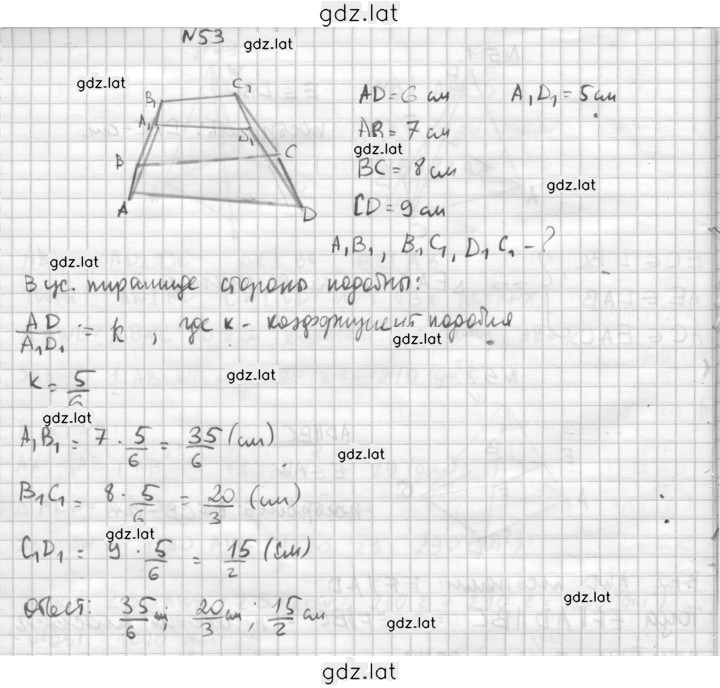 gdz.lat
N53
gdz.lat
gdz.lat
B₁ C₁ A₁ D₁ B C A D
AD = 6 см A₁D₁ = 5 см
AB = 7 см
gdz.lat
BC = 8 см
gdz.lat
CD = 9 см
A₁B₁, B₁C₁, D₁C₁ - ?
gdz.lat
В ус. пирамиде стороны подобны:
AD/A₁D₁ = k, где к - коэффициент подобия
gdz.lat
k = 5/6
gdz.lat
gdz.lat
A₁B₁ = 7 · 5/6 = 35/6 (см)
gdz.lat
B₁C₁ = 8 · 5/6 = 20/3 (см)
gdz.lat
C₁D₁ = 9 · 5/6 = 15/2 (см)
Ответ: 35/6 см; 20/3 см; 15/2 см
gdz.lat
gdz.lat
gdz.lat